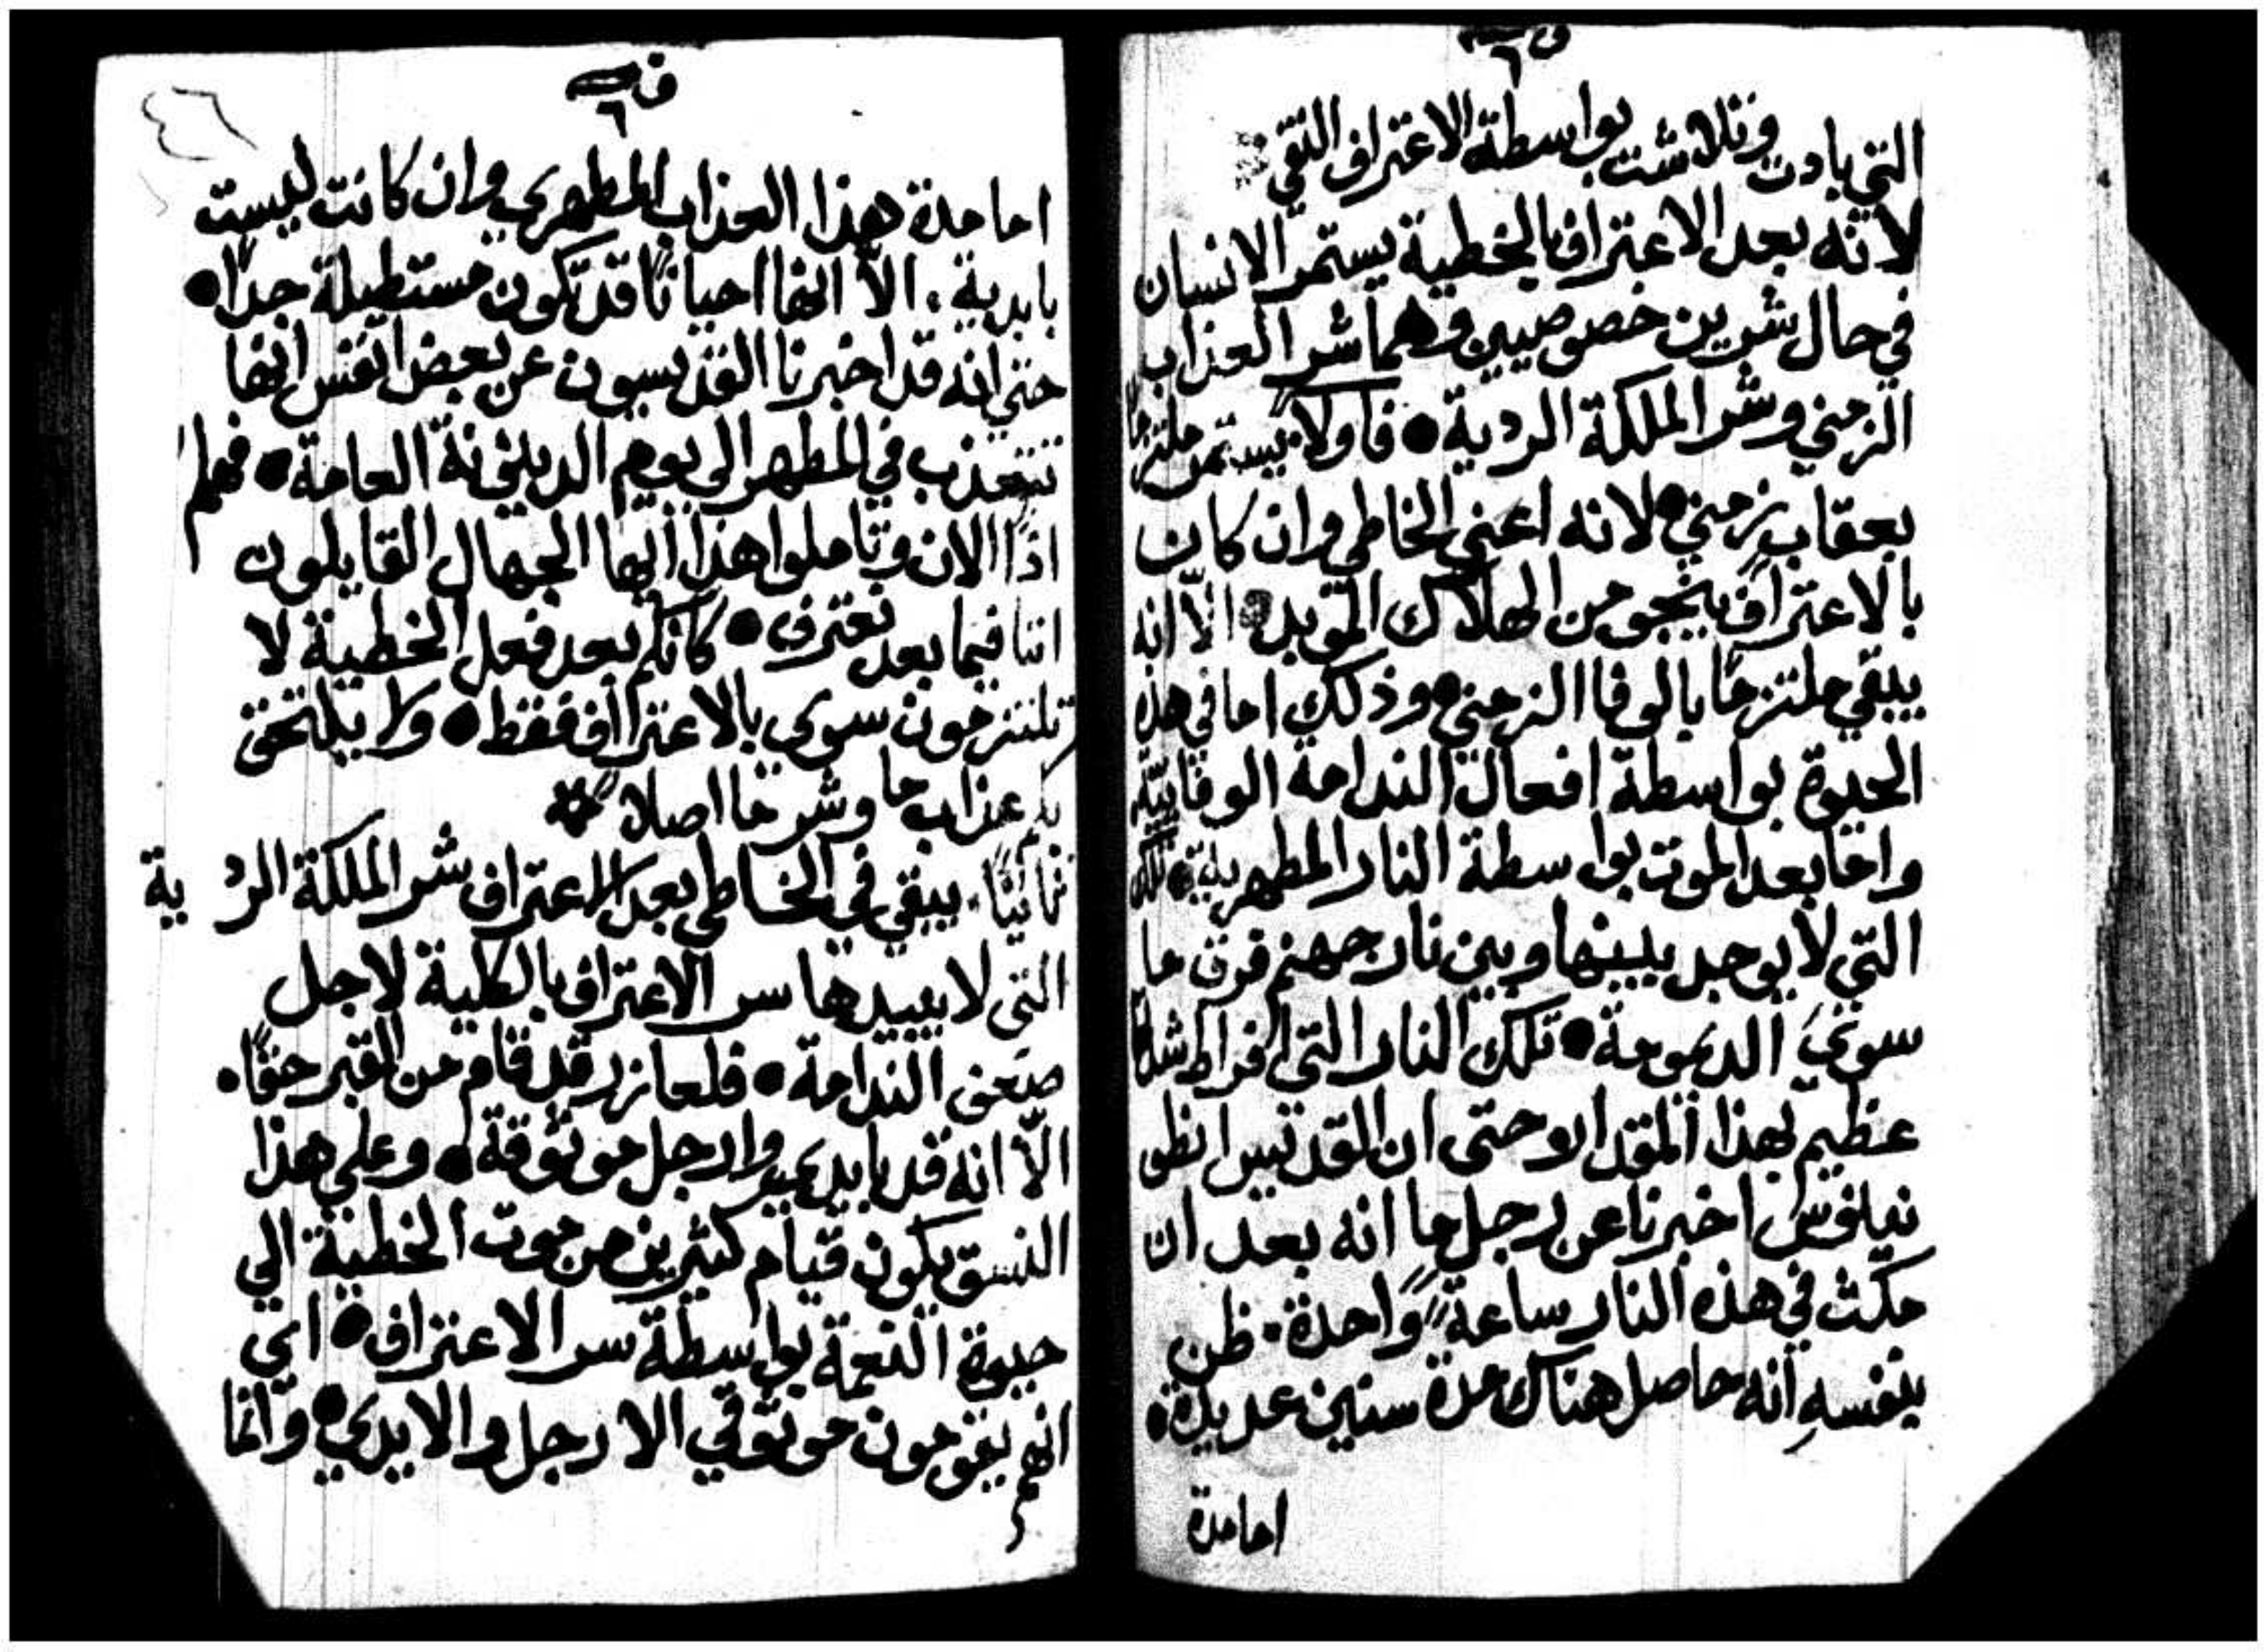 ف
٦
التي بادت وتلاشت بواسطة الاعتراف النقي
لانه بعد الاعتراف بالخطية يستمر الانسان
في حال شرين خصوصيين وهما شر العذاب
الزمني وشر الملكة الردية • فاولاً يستمر ملتزماً
بعقاب زمني • لانه اعني الخاطي وان كان
بالاعتراف ينجو من الهلاك المؤبد • الّا انه
يبقي ملتزماً بالوفا الزمني • وذلك اما في هذه
الحيوة بواسطة افعال الندامة الوفاييّة
واما بعد الموت بواسطة النار المطهرية • تلك
التي لا يوجد بينها وبين نار جهنم فرق ما
سوي الديمومة • تلك النار التي افراط شدتها
عظيم بهذا المقدار حتى ان القديس انطو
نينوس اخبرنا عن رجل ما انه بعد ان
مكث في هذه النار ساعةً واحدة • ظن
بنفسهِ انه حاصل هناك مدة سنين عديدة •
اما مدة
ف
٦
٤٦
اما مدة هذا العذاب المطهري وان كانت ليست
بابدية • الّا انها احياناً قد تكون مستطيلة جداً •
حتي انه قد اخبرنا القديسون عن بعض انفس انها
تتعذب في المطهر الي يوم الدينونة العامة • فهلم
اذاً الان وتاملوا هذا ايها الجهال القايلون
اننا فيما بعد نعترف • كانكم بعد فعل الخطية لا
تلتزمون سوي بالاعتراف فقط • ولا يلتحق
بكم عذاب ما وشر ما اصلاً
ثانياً • يبقي في الخاطي بعد الاعتراف شر الملكة الردية
التي لا يبيدها سر الاعتراف بالكلية لاجل
ضعف الندامة • فلعازر قد قام من القبر حقاً •
الّا انه قد بايدي وارجل موثوقة • وعلي هذا
النسق يكون قيام كثيرين من موت الخطية الي
حيوة النعمة بواسطة سر الاعتراف • اي
انهم يقومون موثوقي الارجل والايدي • وانما